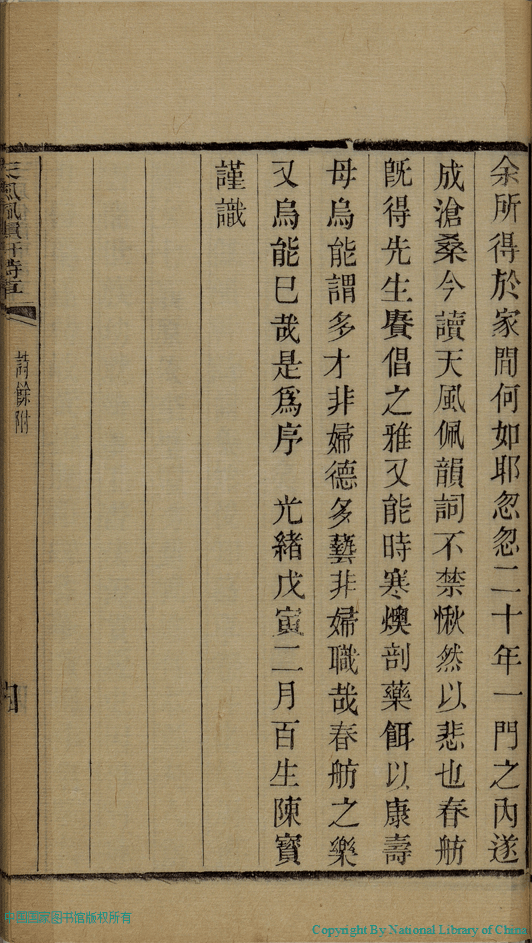 余所得於家間何如耶忽忽二十年一門之內遂
成滄桑今讀天風佩韻詞不禁愀然以悲也春舫
旣得先生賡倡之雅又能時寒燠剖藥餌以康壽
母烏能謂多才非婦德多藝非婦職哉春舫之樂
又烏能已哉是爲序　光緒戊寅二月百生陳寶
謹識
詩餘附
中国国家图书馆版权所有
Copyright By National Library of China